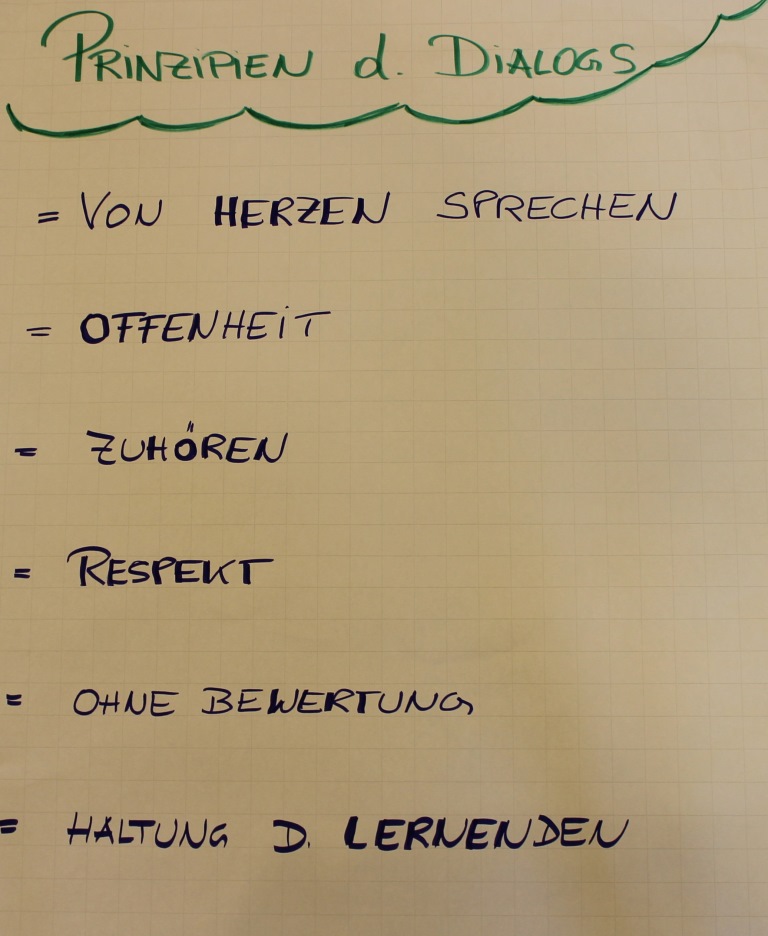 PRINZIPIEN d. DIALOGS
= VON HERZEN SPRECHEN
= OFFENHEIT
= ZUHÖREN
= RESPEKT
= OHNE BEWERTUNG
= HALTUNG D. LERNENDEN